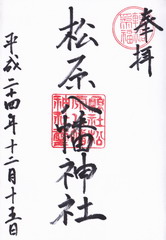 奉拝
松原八幡神社
平成二十四年十二月十五日